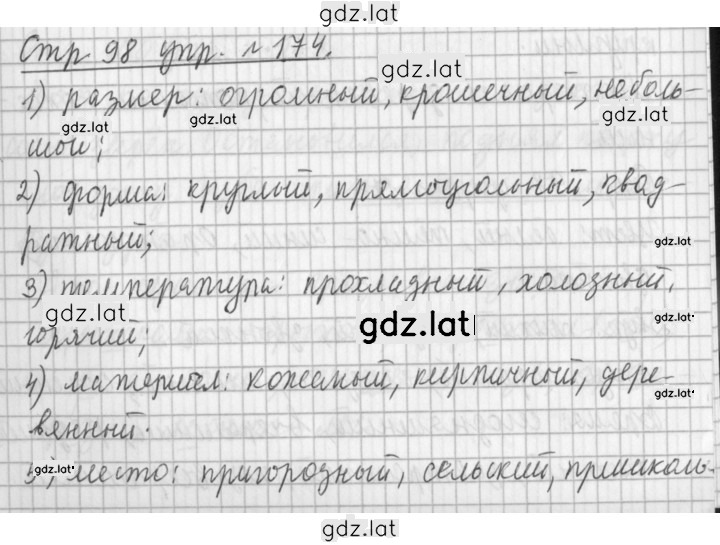 gdz.lat
Стр 98 упр. № 174.
gdz.lat
1) размер: огромный, крошечный, неболь-
gdz.lat gdz.lat gdz.lat
шой;
2) форма: круглый, прямоугольный, квад-
ратный;
gdz.lat
3) температура: прохладный, холозный,
gdz.lat gdz.lat gdz.lat
горячий;
4) материал: кожаный, кирпичный, дере-
gdz.lat
венный.
5) место: пригорозный, сельский, пришколь-
gdz.lat gdz.lat
gdz.lat